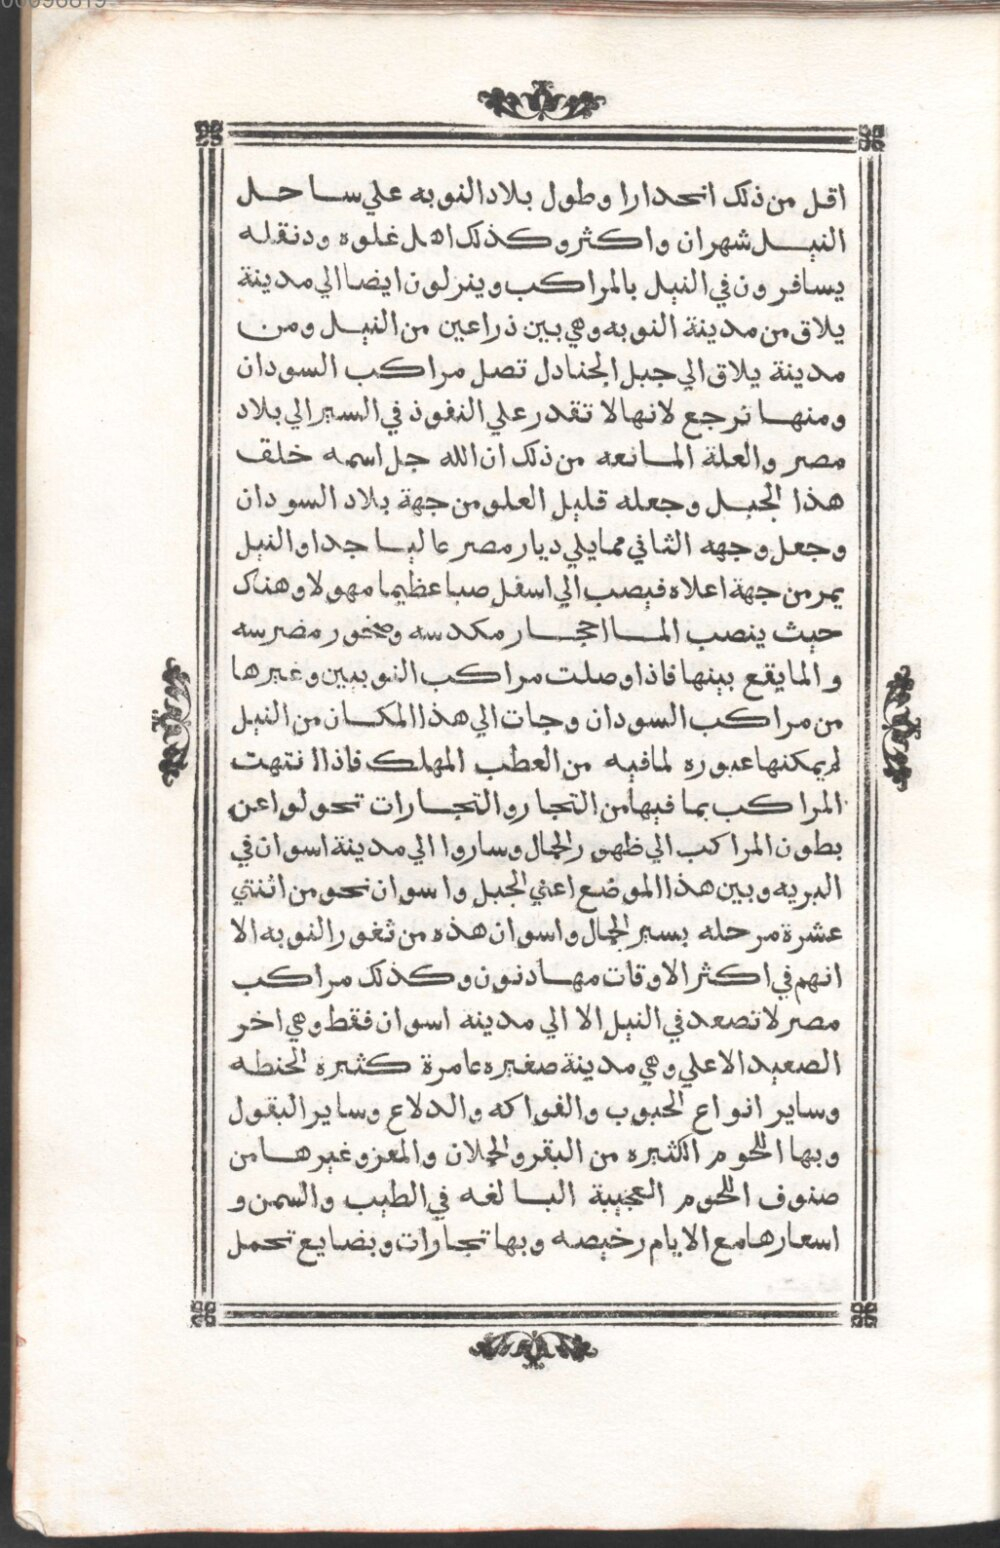 00096819
اقل من ذلك انحدارا وطول بلاد النوبه علي ساحل
النيل شهران واكثر وكذلك اهل غلوه ودنقله
يسافرون في النيل بالمراكب وينزلون ايضا الي مدينة
يلاق من مدينة النوبه وهي بين ذراعين من النيل ومن
مدينة يلاق الي جبل الجنادل تصل مراكب السودان
ومنها ترجع لانها لا تقدر علي النفوذ في السير الي بلاد
مصر والعلة المانعه من ذلك ان الله جل اسمه خلق
هذا الجبل وجعله قليل العلو من جهة بلاد السودان
وجعل وجهه الثاني مما يلي ديار مصر عاليا جدا والنيل
يمر من جهة اعلاه فيصب الي اسفل صبا عظيما مهولا وهناك
حيث ينصب الما احجار مكدسه وصخور مضرسه
والما يقع بينها فاذا وصلت مراكب النوبيين وغيرها
من مراكب السودان وجات الي هذا المكان من النيل
لم يمكنها عبوره لما فيه من العطب المهلك فاذا انتهت
المراكب بما فيها من التجار والتجارات تحولوا عن
بطون المراكب الي ظهور الجمال وساروا الي مدينة اسوان في
البريه وبين هذا الموضع اعني الجبل واسوان نحو من اثنتي
عشرة مرحله بسير الجمال واسوان هذه من ثغور النوبه الا
انهم في اكثر الاوقات مهادنون وكذلك مراكب
مصر لا تصعد في النيل الا الي مدينه اسوان فقط وهي اخر
الصعيد الاعلي وهي مدينة صغيره عامرة كثيره الحنطه
وساير انواع الحبوب والفواكه والدلاع وساير البقول
وبها اللحوم الكثيره من البقر والحملان والمعز وغيرها من
صنوف اللحوم العجيبة البالغه في الطيب والسمن و
اسعارها مع الايام رخيصه وبها تجاوات وبضايع تحمل